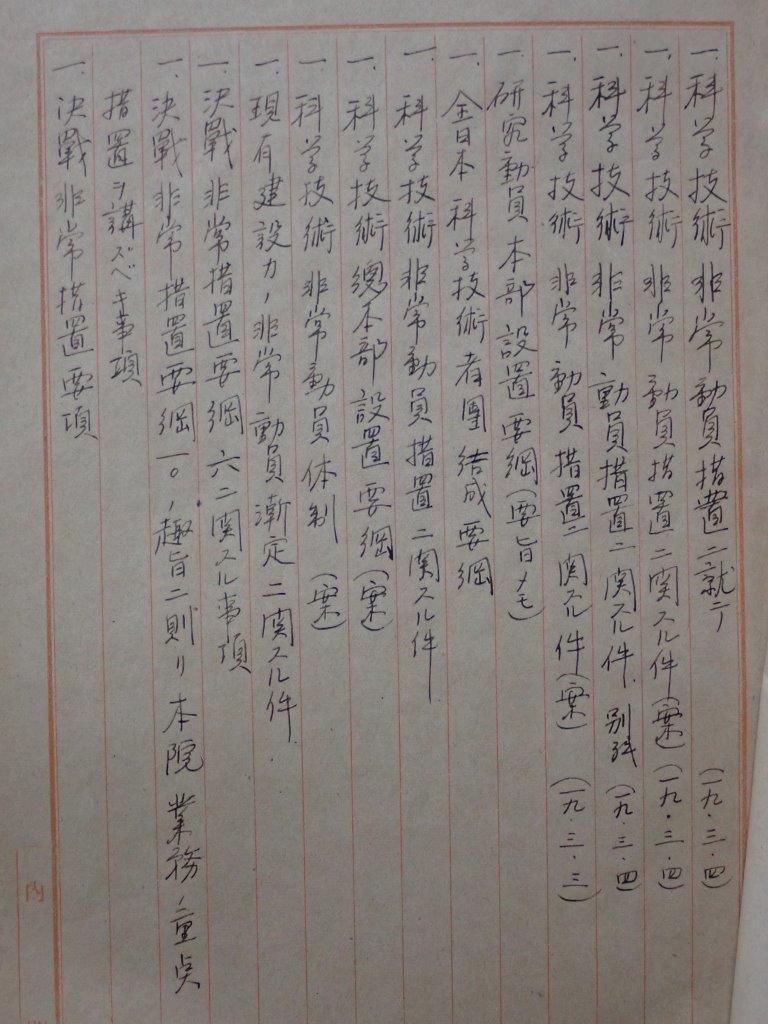 一、科学技術非常動員措置ニ就テ (一九・三・四)
一、科学技術非常動員措置ニ関スル件(案) (一九・三・四)
一、科学技術非常動員措置ニ関スル件 別紙 (一九・三・四)
一、科学技術非常動員措置ニ関スル件(案) (一九・三・三)
一、研究動員本部設置要綱(要旨メモ)
一、全日本科学技術者團結成要綱
一、科学技術非常動員措置ニ関スル件
一、科学技術總本部設置要綱(案)
一、科学技術非常動員体制(案)
一、現有建設力ノ非常動員漸定ニ関スル件
一、決戰非常措置要綱六ニ関スル事項
一、決戰非常措置要綱一〇ノ趣旨ニ則リ本院業務ノ重点
措置ヲ講ズベキ事項
一、決戰非常措置要項
内